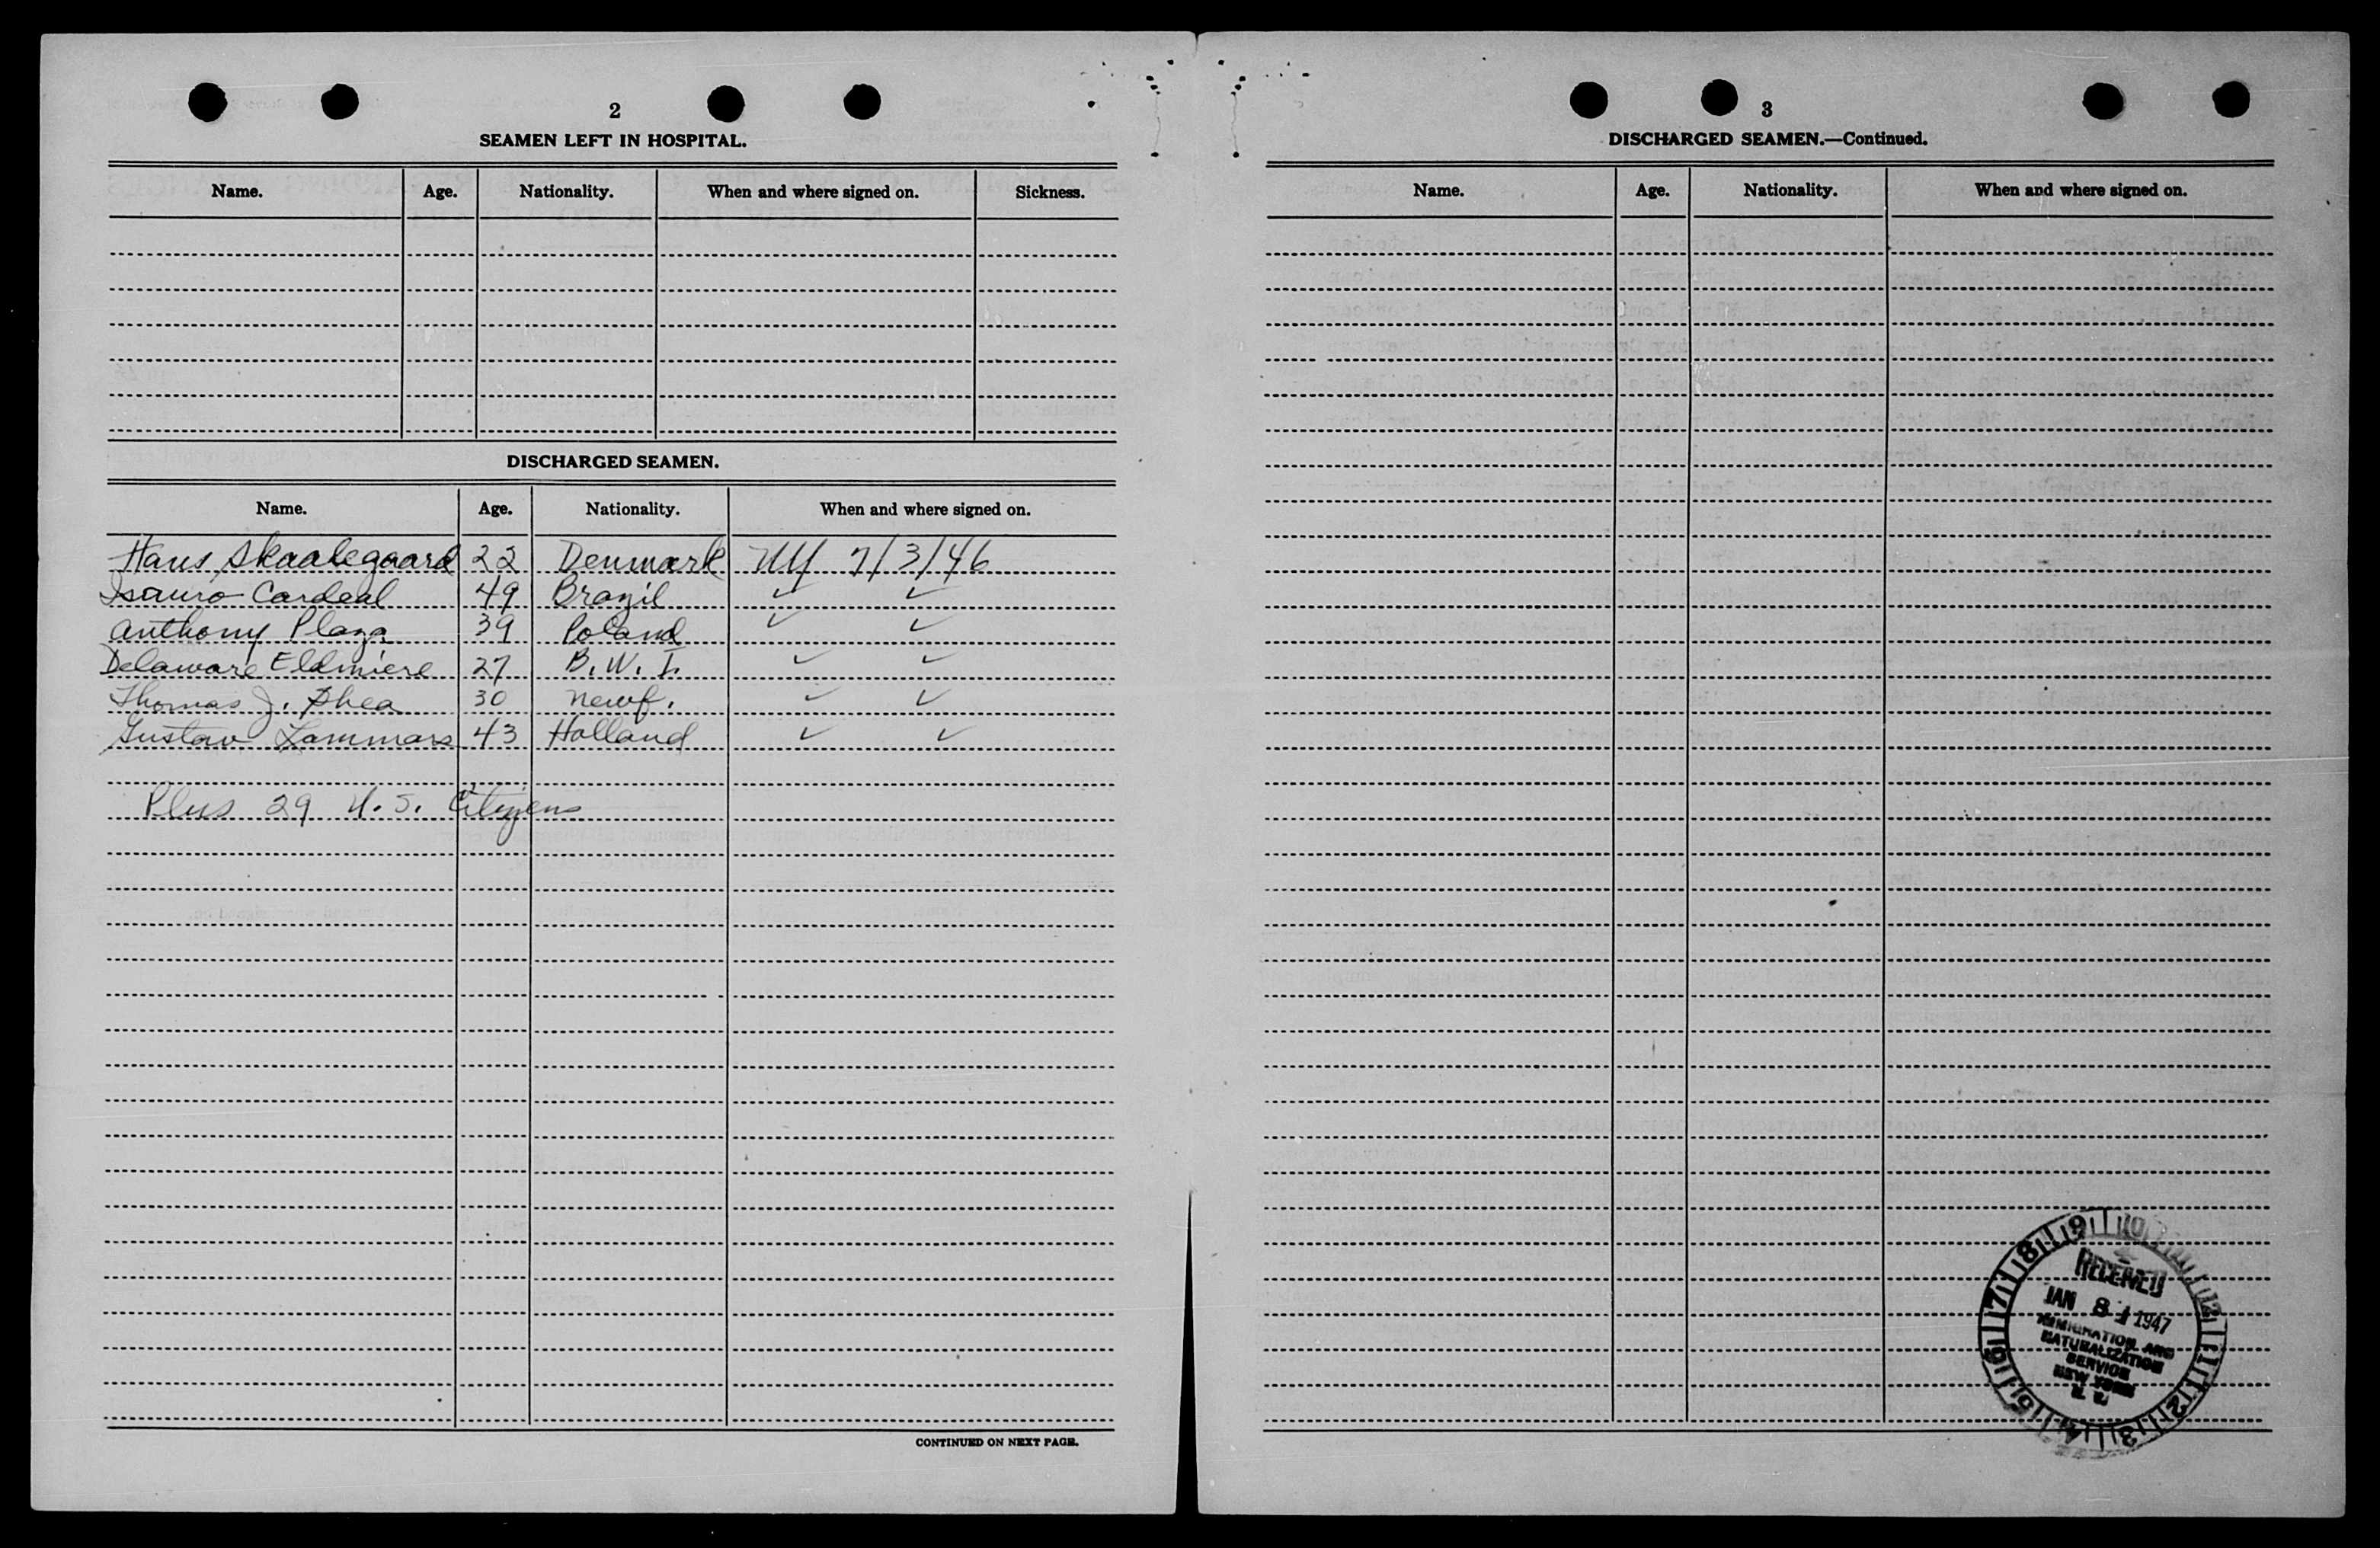 2
SEAMEN LEFT IN HOSPITAL.
Name. Age. Nationality. When and where signed on. Sickness.
DISCHARGED SEAMEN.
Name. Age. Nationality. When and where signed on.
Hans Skaalegaard 22 Denmark NY 7/3/46
Isauro Cardeal 49 Brazil ✓ ✓
Anthony Plaza 39 Poland ✓ ✓
Delaware Eldmiere 27 B.W.I. ✓ ✓
Thomas J. Shea 30 Newf. ✓ ✓
Gustav Lammars 43 Holland ✓ ✓
Plus 29 U.S. Citizens
CONTINUED ON NEXT PAGE.
3
DISCHARGED SEAMEN.—Continued.
Name. Age. Nationality. When and where signed on.
RECEIVED
JAN 8 1947
IMMIGRATION AND
NATURALIZATION
SERVICE
NEW YORK
N. Y.